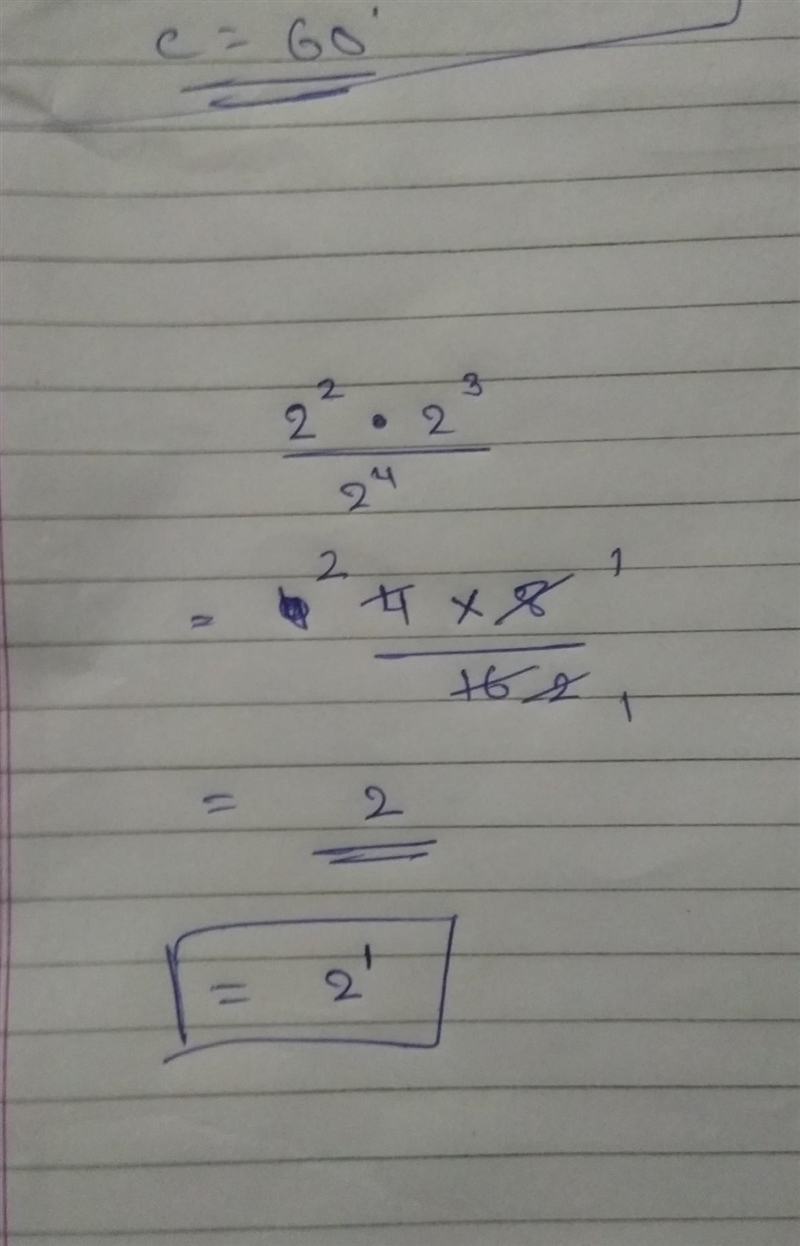 c = 60
2² • 2³
2⁴
= 2 4 × 8 1
16 2 1
= 2
= 2¹